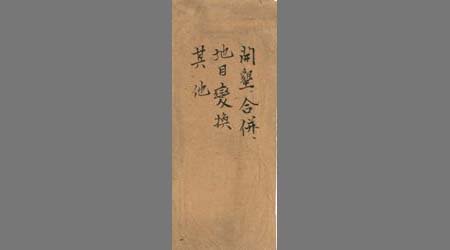 開墾、合併、
地目變換
其他